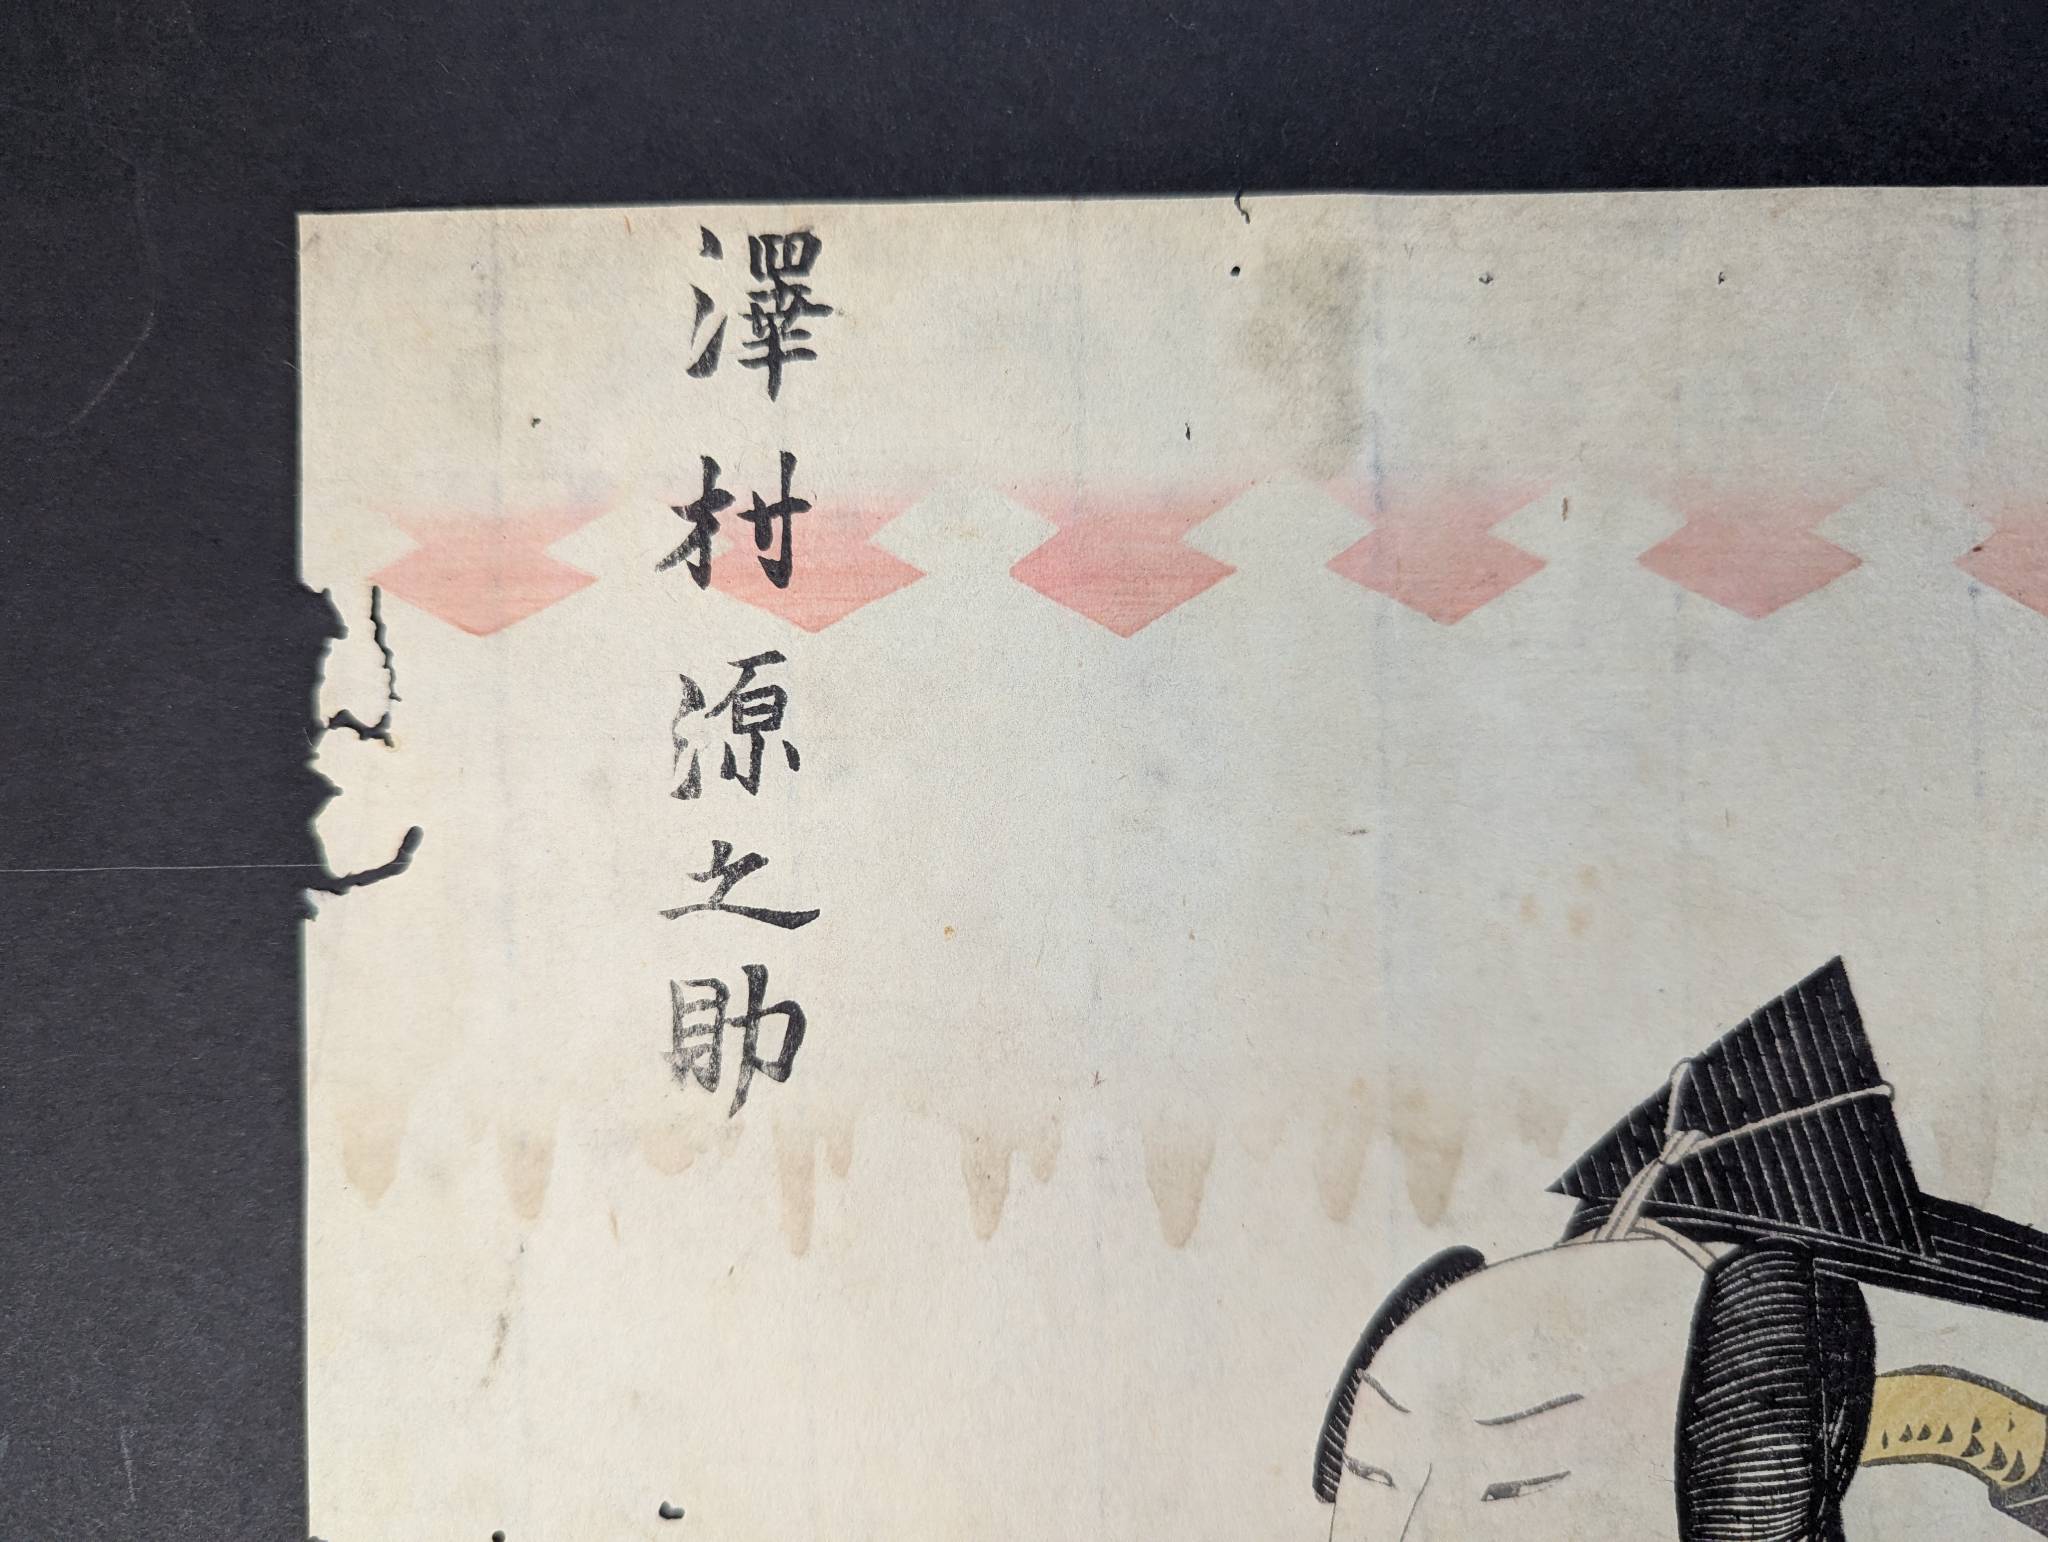 澤村源之助